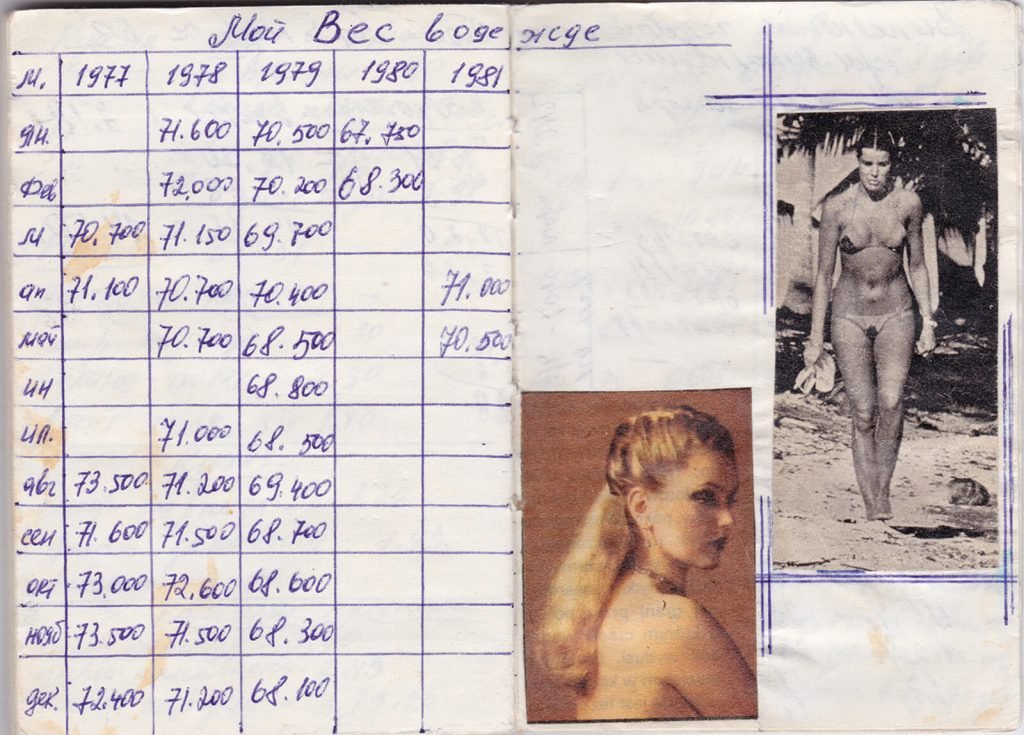 Мой Вес в одежде
м. 1977 1978 1979 1980 1981
ян. 71.600 70.500 67.750
фев 72,000 70.200 68.300
м 70.700 71.150 69.700
ап 71.100 70.700 70.400 71.000
май 70.700 68.500 70.500
ин 68.800
ил. 71.000 68.500
авг 73.500 71.200 69.400
сен 71.600 71.500 68.700
окт 73.000 72.600 68.600
нояб 73.500 71.500 68.300
дек. 72.400 71.200 68.100